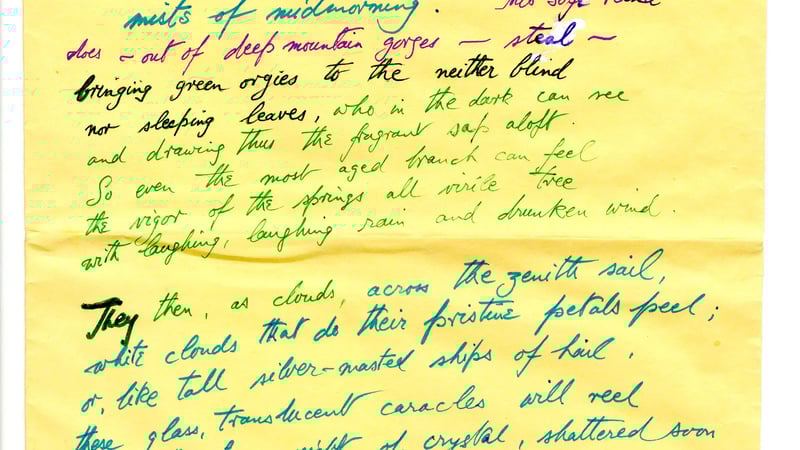 mists of midmorning.
does - out of deep mountain gorges - steal -
bringing green orgies to the neither blind
nor sleeping leaves, who in the dark can see
and drawing thus the fragrant sap aloft.
So even the most aged branch can feel
the vigor of the springs all virile tree
with laughing, laughing rain and drunken wind.
They then, as clouds, across the zenith sail,
white clouds that do their pristine petals peel;
or, like tall silver-masted ships of hail,
these glass, translucent caracles will reel
of crystal, shattered soon